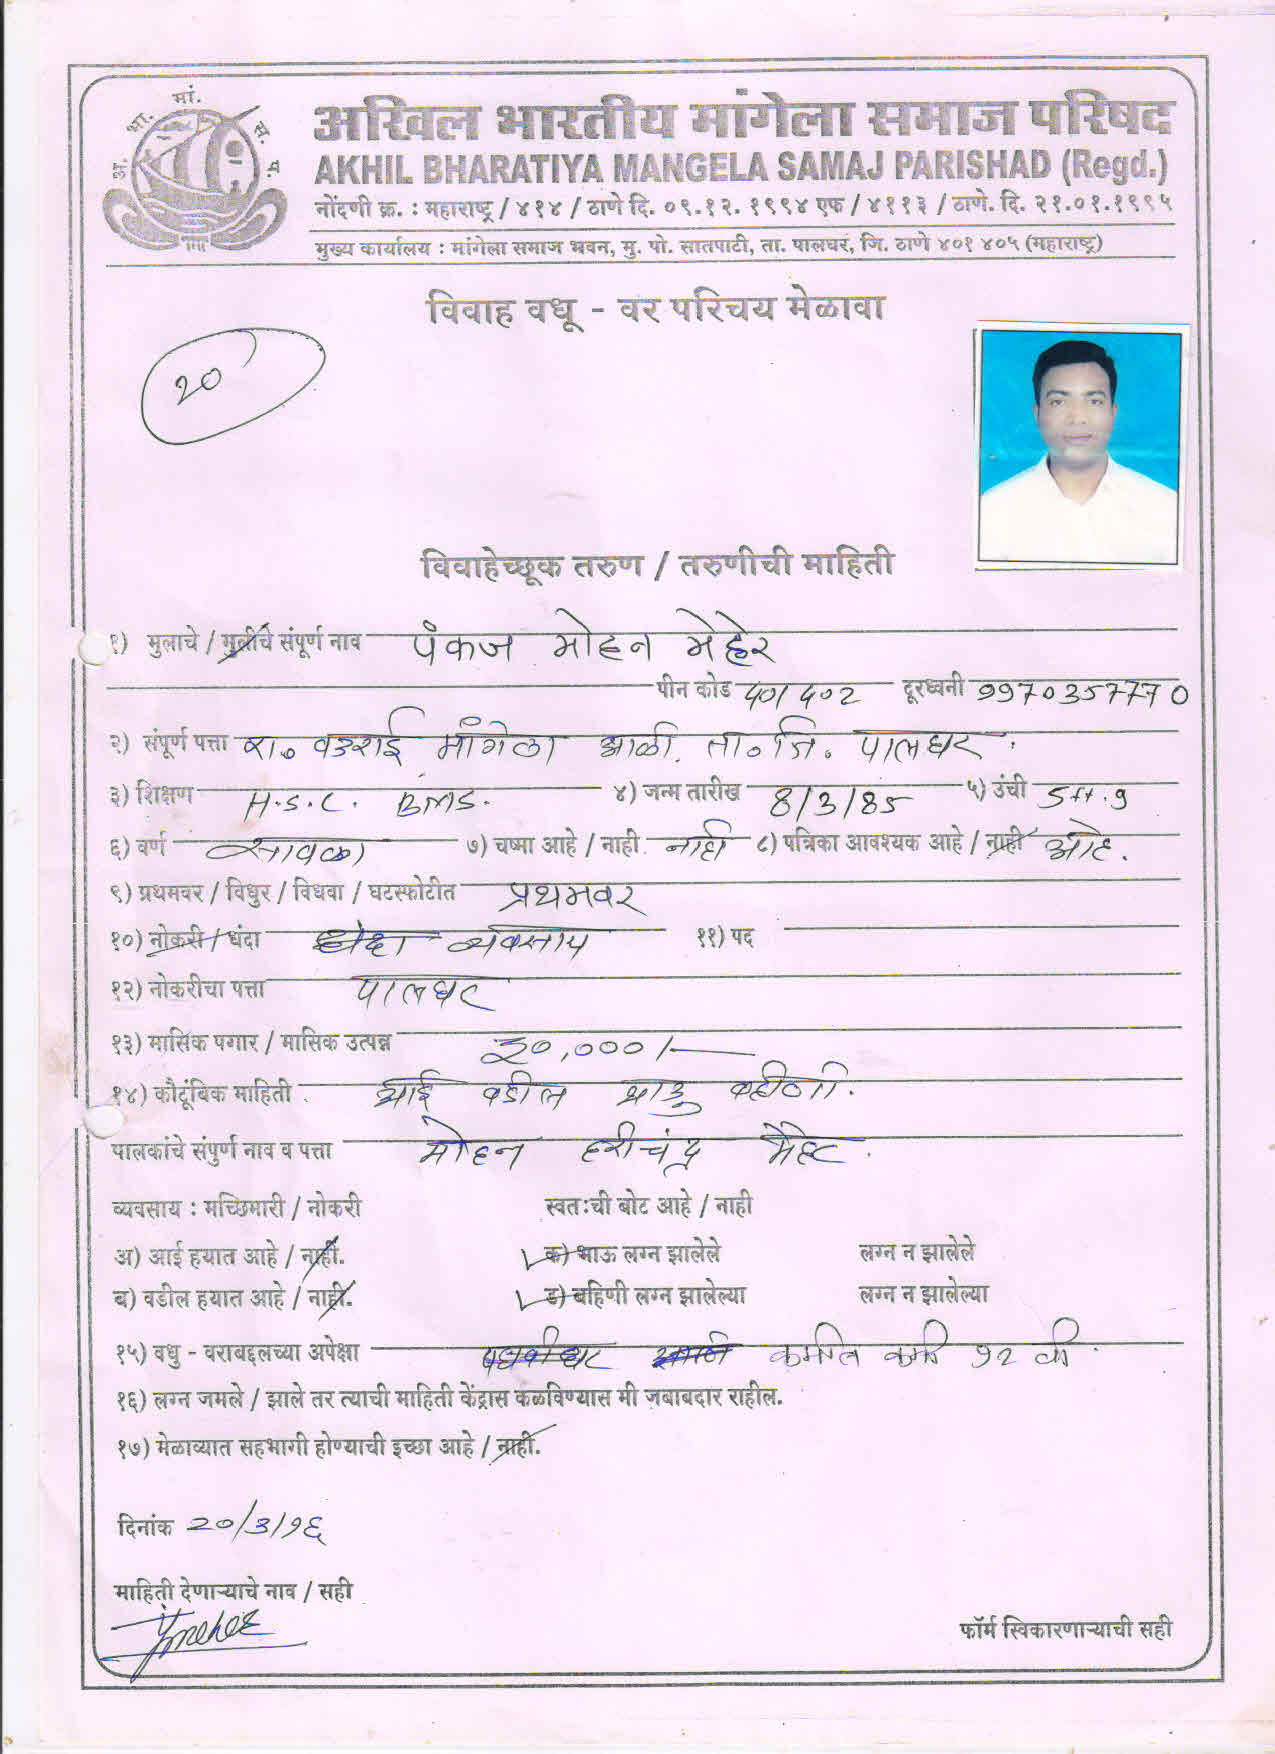 अ. भा. मां. स. प.
अखिल भारतीय मांगेला समाज परिषद
AKHIL BHARATIYA MANGELA SAMAJ PARISHAD (Regd.)
नोंदणी क्र. : महाराष्ट्र / ४१४ / ठाणे दि. ०९.१२. १९९४ एफ / ४११३ / ठाणे. दि. २१.०१.१९९५
मुख्य कार्यालय : मांगेला समाज भवन, मु. पो. सातपाटी, ता. पालघर, जि. ठाणे ४०१ ४०५ (महाराष्ट्र)
विवाह वधू - वर परिचय मेळावा
२०
विवाहेच्छूक तरुण / तरुणीची माहिती
१) मुलाचे / मुलीचे संपूर्ण नाव पंकज मोहन मेहेर
पीन कोड ४०१४०२ दूरध्वनी 9970357770
२) संपूर्ण पत्ता रा. वडराई मांगेला आळी. ता. जि. पालघर.
३) शिक्षण H.S.C. BMS. ४) जन्म तारीख 8/3/85 ५) उंची 5 फ. 9
६) वर्ण सावळा ७) चष्मा आहे / नाही नाही ८) पत्रिका आवश्यक आहे / नाही आहे.
९) प्रथमवर / विधुर / विधवा / घटस्फोटीत प्रथमवर
१०) नोकरी / धंदा व्यवसाय ११) पद
१२) नोकरीचा पत्ता पालघर
१३) मासिक पगार / मासिक उत्पन्न ३०,०००/-
१४) कौटूंबिक माहिती आई वडील भाऊ वहीणी.
पालकांचे संपुर्ण नाव व पत्ता मोहन हरीचंद्र मेहेर.
व्यवसाय : मच्छिमारी / नोकरी स्वतःची बोट आहे / नाही
अ) आई हयात आहे / नाही. क) भाऊ लग्न झालेले लग्न न झालेले
ब) वडील हयात आहे / नाही. ड) बहिणी लग्न झालेल्या लग्न न झालेल्या
१५) वधु - वराबद्दलच्या अपेक्षा कमीत कमी १२ वी.
१६) लग्न जमले / झाले तर त्याची माहिती केंद्रास कळविण्यास मी जबाबदार राहील.
१७) मेळाव्यात सहभागी होण्याची इच्छा आहे / नाही.
दिनांक २०/३/१६
माहिती देणाऱ्याचे नाव / सही
फॉर्म स्विकारणाऱ्याची सही